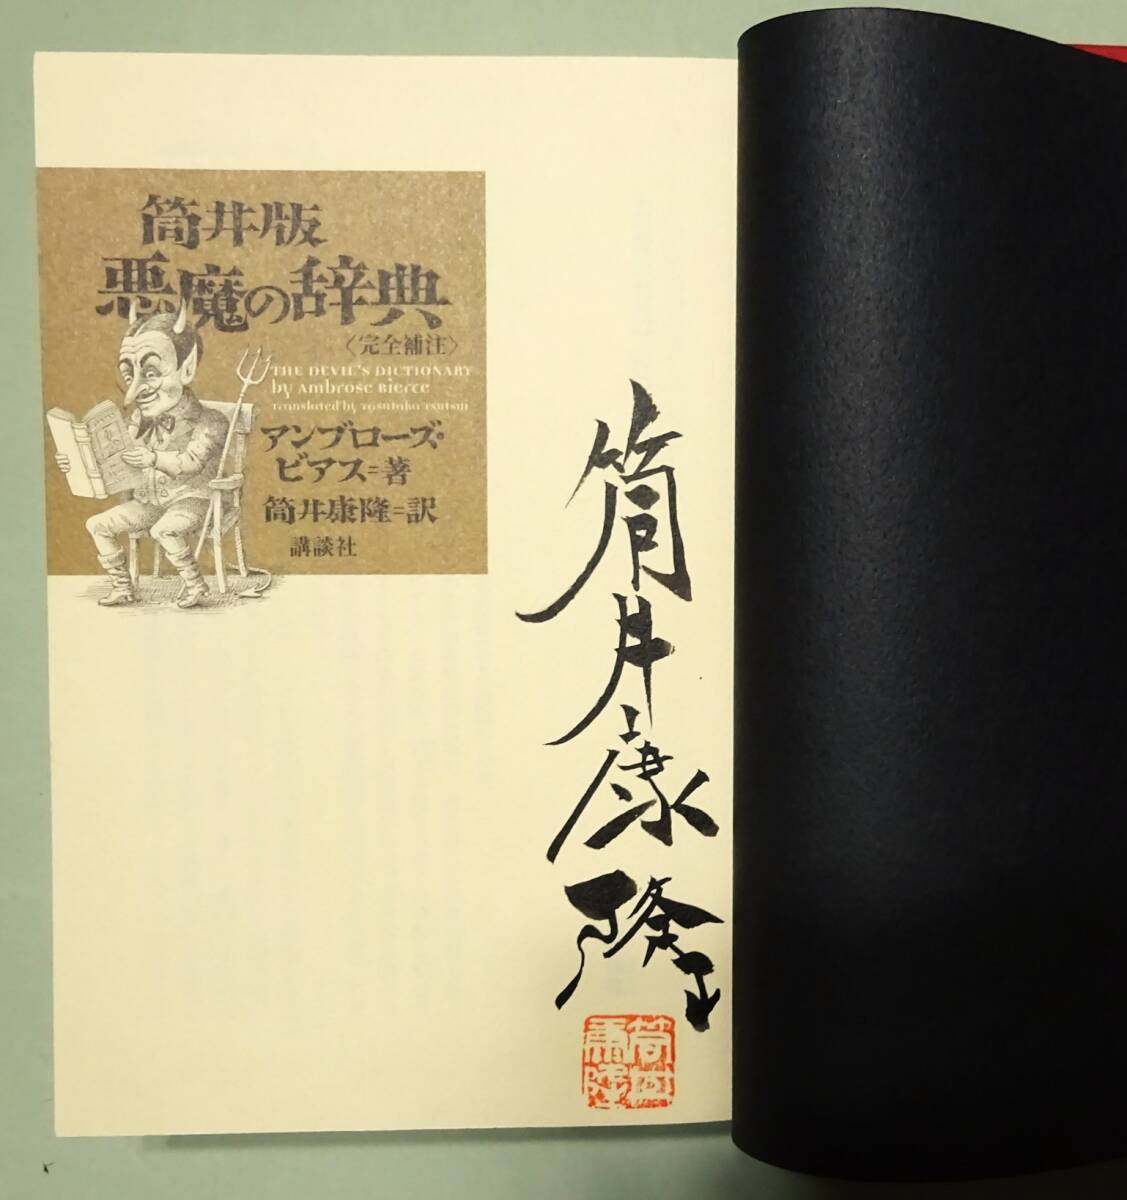 筒井版
悪魔の辞典
〈完全補注〉
THE DEVIL'S DICTIONARY
by Ambrose Bierce
Translated by Yasutaka Tsutsui
アンブローズ・
ビアス=著
筒井康隆=訳
講談社
筒井康隆
筒井
康隆